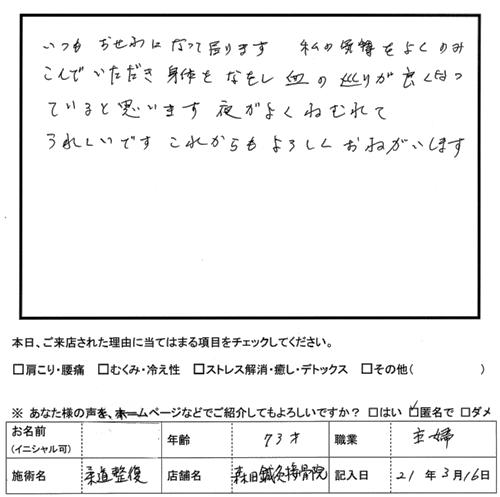 いつも おせわになって居ります 私の気持をよくのみ
こんでいただき 身体をなをし 血の巡りが良くなっ
ていると思います 夜がよくねむれて
うれしいです これからもよろしくおねがいします
本日、ご来店された理由に当てはまる項目をチェックしてください。
□肩こり・腰痛 □むくみ・冷え性 □ストレス解消・癒し・デトックス □その他( )
※ あなた様の声を、ホームページなどでご紹介してもよろしいですか？ □はい ☑匿名で □ダメ
お名前 年齢 73才 職業 主婦
(イニシャル可)
施術名 柔道整復 店舗名 森田鍼灸接骨院 記入日 21年3月16日